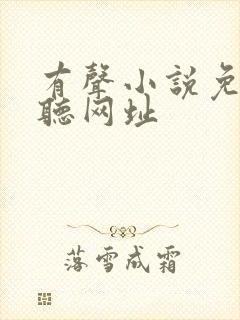 有聲小說免
聽网址
落雪成霜